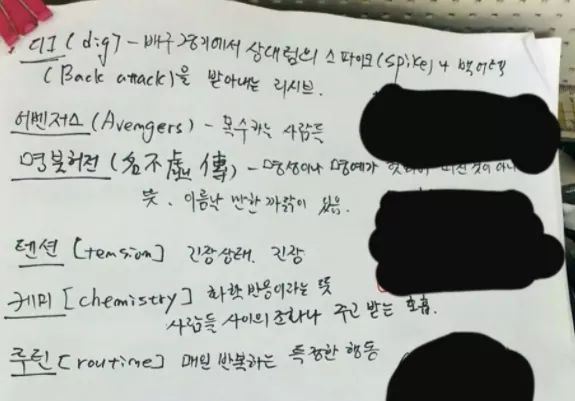 디그(dig) - 배구경기에서 상대팀의 스파이크(spike)나 백어택
(Back attack)을 받아내는 리시브.
어벤저스(Avengers) - 복수하는 사람들
명불허전(名不虛傳) - 명성이나 명예가 것이 아니
뜻. 이름날 만한 까닭이 있음.
텐션[tension] 긴장상태, 긴장
케미[chemistry] 화학반응이라는 뜻
사람들 사이의 조화나 주고 받는 호흡.
루틴[routine] 매일 반복하는 특정한 행동